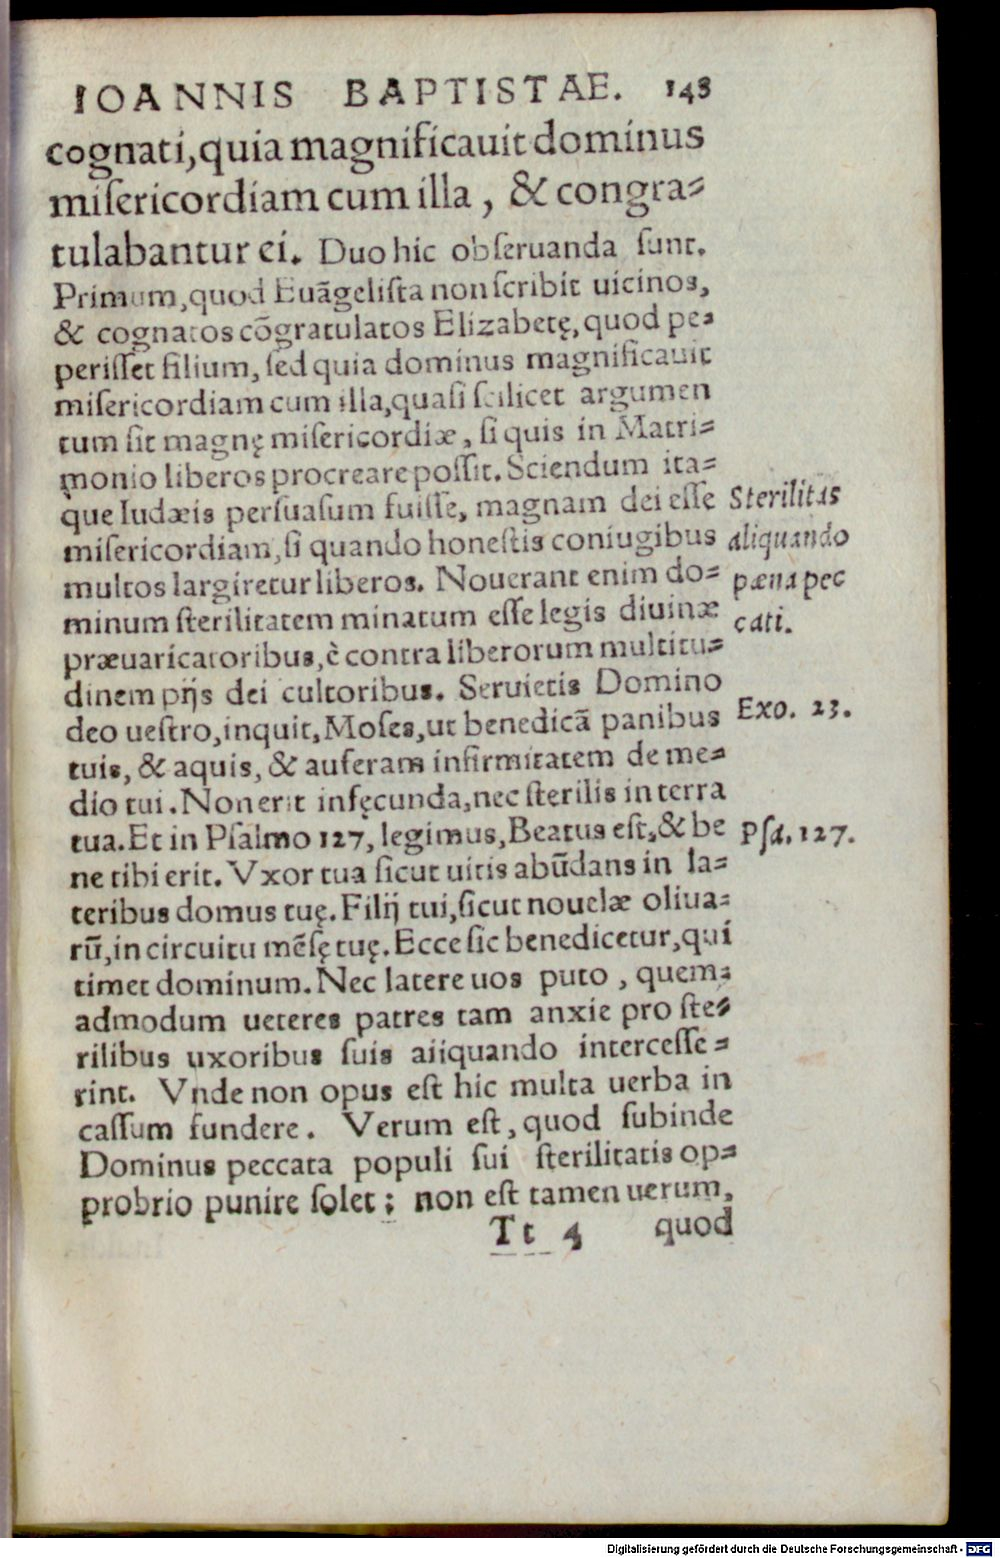 IOANNIS BAPTISTAE. 148
cognati, quia magnificauit dominus
misericordiam cum illa, & congra=
tulabantur ei. Duo hic obseruanda sunt.
Primum, quod Euãgelista non scribit uicinos,
& cognatos cõgratulatos Elizabetę, quod pe=
perisset filium, sed quia dominus magnificauit
misericordiam cum illa, quasi scilicet argumen
tum sit magnę misericordiæ, si quis in Matri=
monio liberos procreare possit. Sciendum ita=
que Iudæis persuasum fuisse, magnam dei esse
Sterilitas
misericordiam, si quando honestis coniugibus
aliquando
multos largiretur liberos. Nouerant enim do=
pœna pec
minum sterilitatem minatum esse legis diuinæ
cati.
præuaricatoribus, è contra liberorum multitu=
dinem pijs dei cultoribus. Seruietis Domino
deo uestro, inquit, Moses, ut benedicã panibus
Exo. 23.
tuis, & aquis, & auferam infirmitatem de me=
dio tui. Non erit infęcunda, nec sterilis in terra
tua. Et in Psalmo 127, legimus, Beatus est, & be
Psa. 127.
ne tibi erit. Vxor tua sicut uitis abũdans in la=
teribus domus tuę. Filij tui, sicut nouelæ oliua=
rũ, in circuitu mẽsę tuę. Ecce sic benedicetur, qui
timet dominum. Nec latere uos puto, quem=
admodum ueteres patres tam anxie pro ste=
rilibus uxoribus suis aiiquando intercesse=
rint. Vnde non opus est hic multa uerba in
cassum fundere. Verum est, quod subinde
Dominus peccata populi sui sterilitatis op=
probrio punire solet; non est tamen uerum,
Tt 4 quod
Digitalisierung gefördert durch die Deutsche Forschungsgemeinschaft - DFG